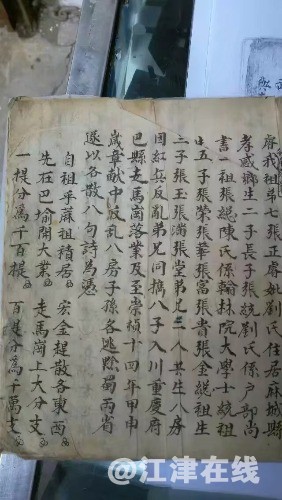 睿我祖弟七張正睿妣劉氏住居麻城縣
孝感鄉生二子長子張統劉氏係戶部尚
書一祖張總陳氏係翰林院大學士統祖
生五子張榮張華張富張貴張金總祖生
三子張玉張滿張堂弟兄三人共生八房
因紅兵反亂弟兄同攜八子入川重慶府
巴縣走馬崗落業及至崇禎十四年甲申
歲章獻中反亂八房子孫各逃黔蜀兩省
遂以各散八句詩為憑
自祖乎蔴祖積居 宏金提散各東西
先在巴渝開大業 走馬崗上大分支
一提分為千百提 百提分為千萬支
@江津在线